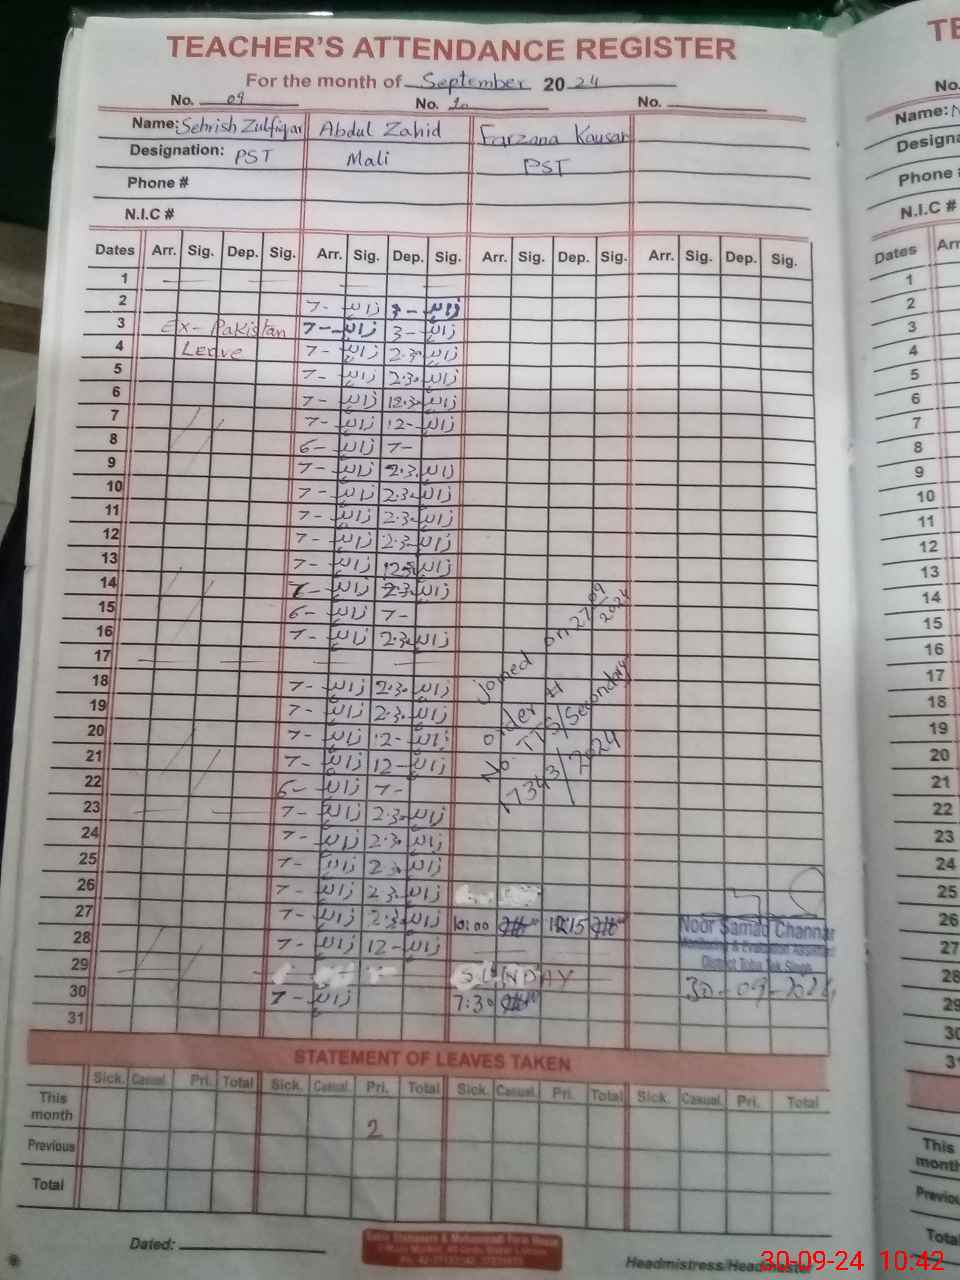 TEACHER'S ATTENDANCE REGISTER
For the month of September 2024
No. 09 No. No.
Name: Sehrish Zulfiqar Abdul Zahid Farzana Kausar
Designation: PST Mali PST
Phone #
N.I.C #
Dates Arr. Sig. Dep. Sig. Arr. Sig. Dep. Sig. Arr. Sig. Dep. Sig. Arr. Sig. Dep. Sig.
1
2 7- زاہد 3- زاہد
3 Ex-Pakistan 7- زاہد 3- زاہد
4 Leave 7- زاہد 2.30 زاہد
5 7- زاہد 2.30 زاہد
6 7- زاہد 12.30 زاہد
7 7- زاہد 12- زاہد
8 6- زاہد 7-
9 7- زاہد 2.30 زاہد
10 7- زاہد 2.30 زاہد
11 7- زاہد 2.30 زاہد
12 7- زاہد 2.30 زاہد
13 7- زاہد زاہد
14 7- زاہد 2.30 زاہد
15 6- زاہد 7-
16 7- زاہد 2.30 زاہد
17
18 7- زاہد 2.30 زاہد
19 7- زاہد 2.30 زاہد
20 7- زاہد 12- زاہد
21 7- زاہد 12- زاہد
22 6- زاہد 7-
23 7- زاہد 2.30 زاہد
24 7- زاہد 2.30 زاہد
25 7- زاہد 2.30 زاہد
26 7- زاہد 2.30 زاہد
27 7- زاہد 2.30 زاہد 10:00 12:15
28 7- زاہد 12- زاہد
29 SUNDAY
30 7- زاہد 7:30
31
Joined on 27/09
2024
order #
No. TTS/Secondary
17343/2024
Noor Samad Channar
Monitoring & Evaluation Assistant
District Toba Tek Singh
30-09-2024
STATEMENT OF LEAVES TAKEN
Sick. Casual. Pri. Total Sick. Casual. Pri. Total Sick. Casual. Pri. Total Sick. Casual. Pri. Total
This month 2
Previous
Total
Dated:
Headmistress/Headmaster
30-09-24 10:42
TE
No.
Name:
Designa
Phone #
N.I.C #
Dates Arr
1
2
3
4
5
6
7
8
9
10
11
12
13
14
15
16
17
18
19
20
21
22
23
24
25
26
27
28
29
30
31
This
month
Previou
Total